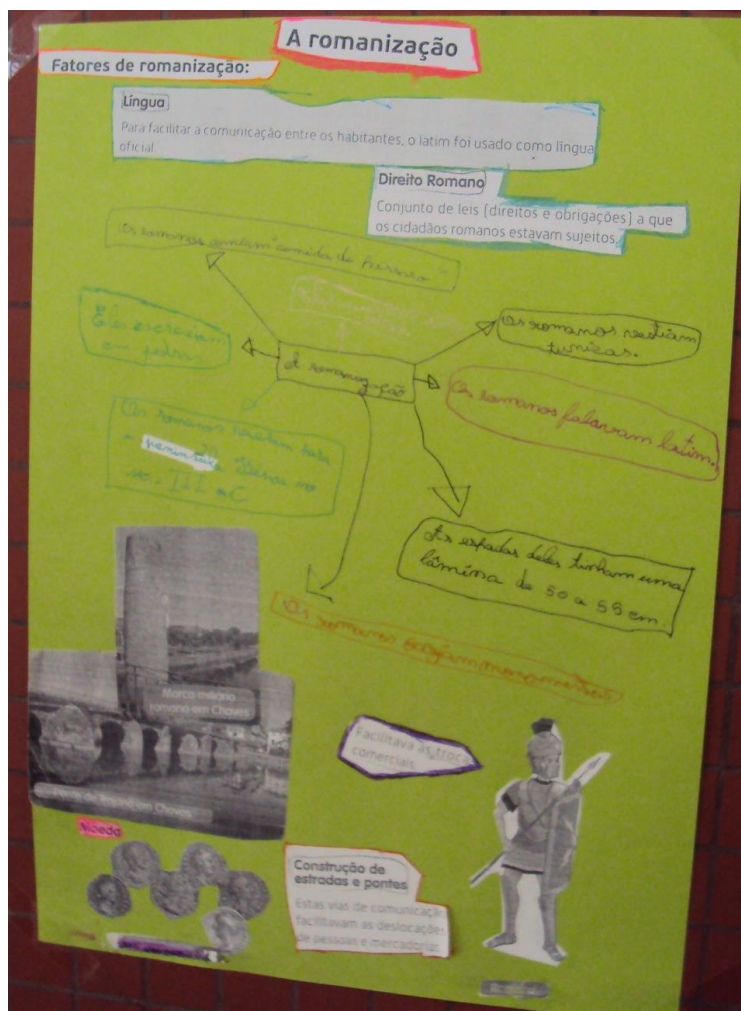 A romanização
Fatores de romanização:
Língua
Para facilitar a comunicação entre os habitantes, o latim foi usado como língua
oficial.
Direito Romano
Conjunto de leis (direitos e obrigações) a que
os cidadãos romanos estavam sujeitos.
Os romanos comiam comida de
Eles escreviam
em pedras.
Os romanos vestiam
tunicas.
A romanização
Os romanos falavam latim.
Os romanos toda
a península no
sec. III a.C
As espadas deles tinham uma
lâmina de 50 a 55 cm.
Os romanos
Marco miliário
romano em Chaves
em Chaves
Facilitava as troca
comerciais.
Moeda
Construção de
estradas e pontes
Estas vias de comunicação
facilitavam as deslocações
de pessoas e mercadorias